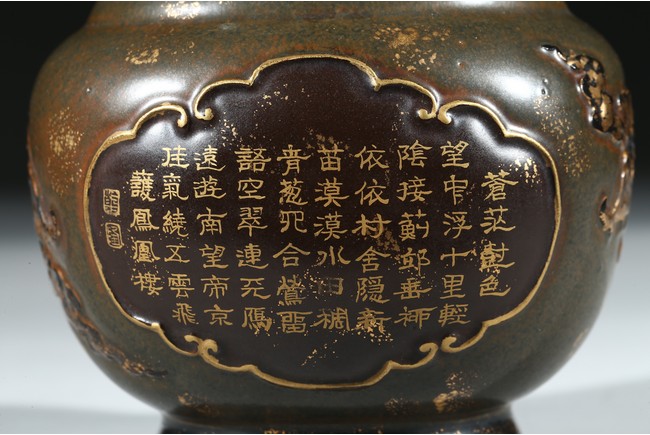 蒼茫樹色
望中浮十里輕
陰接薊邱垂柳
依依村舍隐新
苗漠漠水田稠
青葱四合鶯留
語空翠連天
遠遊南望帝京
佳氣繞五雲飛
護鳳凰樓
乾
隆